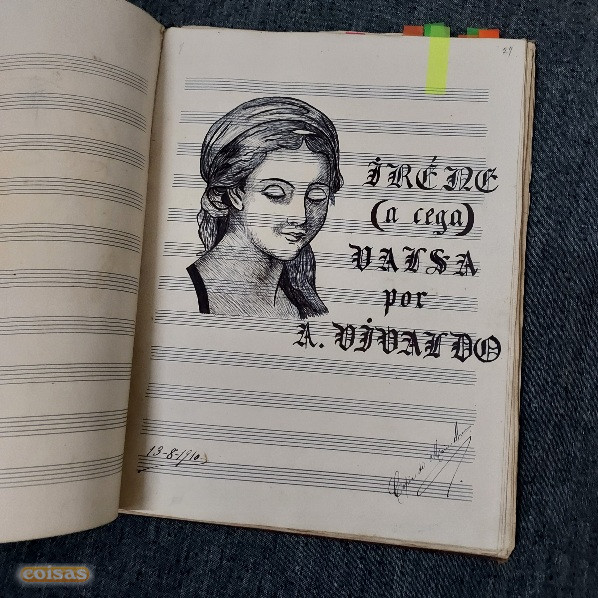 29
IRÉNE
(a cega)
VALSA
por
A. VIVALDO
13-8-1910
coisas